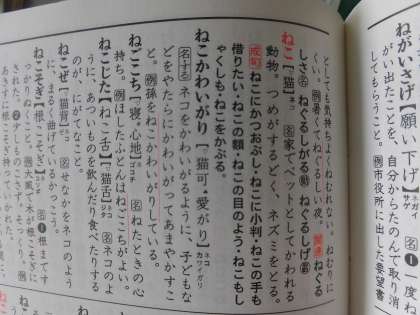 ねがいさげ【願い下げ】ネガイサゲ 名 一度ね
がい出たことを、自分からたのんで取り消
してもらうこと。例市役所に出した要望書
としても気持ちよくねむれない。ねむりに
くい。例暑くてねぐるしい夜。関連ねぐる
しさ名 ねぐるしがる動 ねぐるしげ
ねこ【猫】ネコ 名 家でペットとしてかわれる
動物。つめがするどく、ネズミをとる。
成句 ねこにかつおぶし・ねこに小判・ねこの手も
借りたい・ねこの額・ねこの目のよう・ねこもし
ゃくしも・ねこをかぶる。
ねこかわいがり【猫可・愛がり】ネコカワイガリ
名する ネコをかわいがるように、子どもな
どをやたらにかわいがってあまやかすこ
と。例孫をねこかわいがりしている。
ねごこち【寝・心地】ネゴコチ 名 ねたときの心
持ち。例ほしたふとんはねごこちがよい。
ねこじた【ねこ舌】【猫舌】ネコジタ 名 ネコのよ
うに、あついものを飲んだり食べたりする
のが、にがてなこと。
ねこぜ【猫背】ネコゼ 名 せなかをネコのよう
に、まるく曲げているかっこう。
ねこそぎ【根こそぎ】ネコソギ 名 ❶根まです